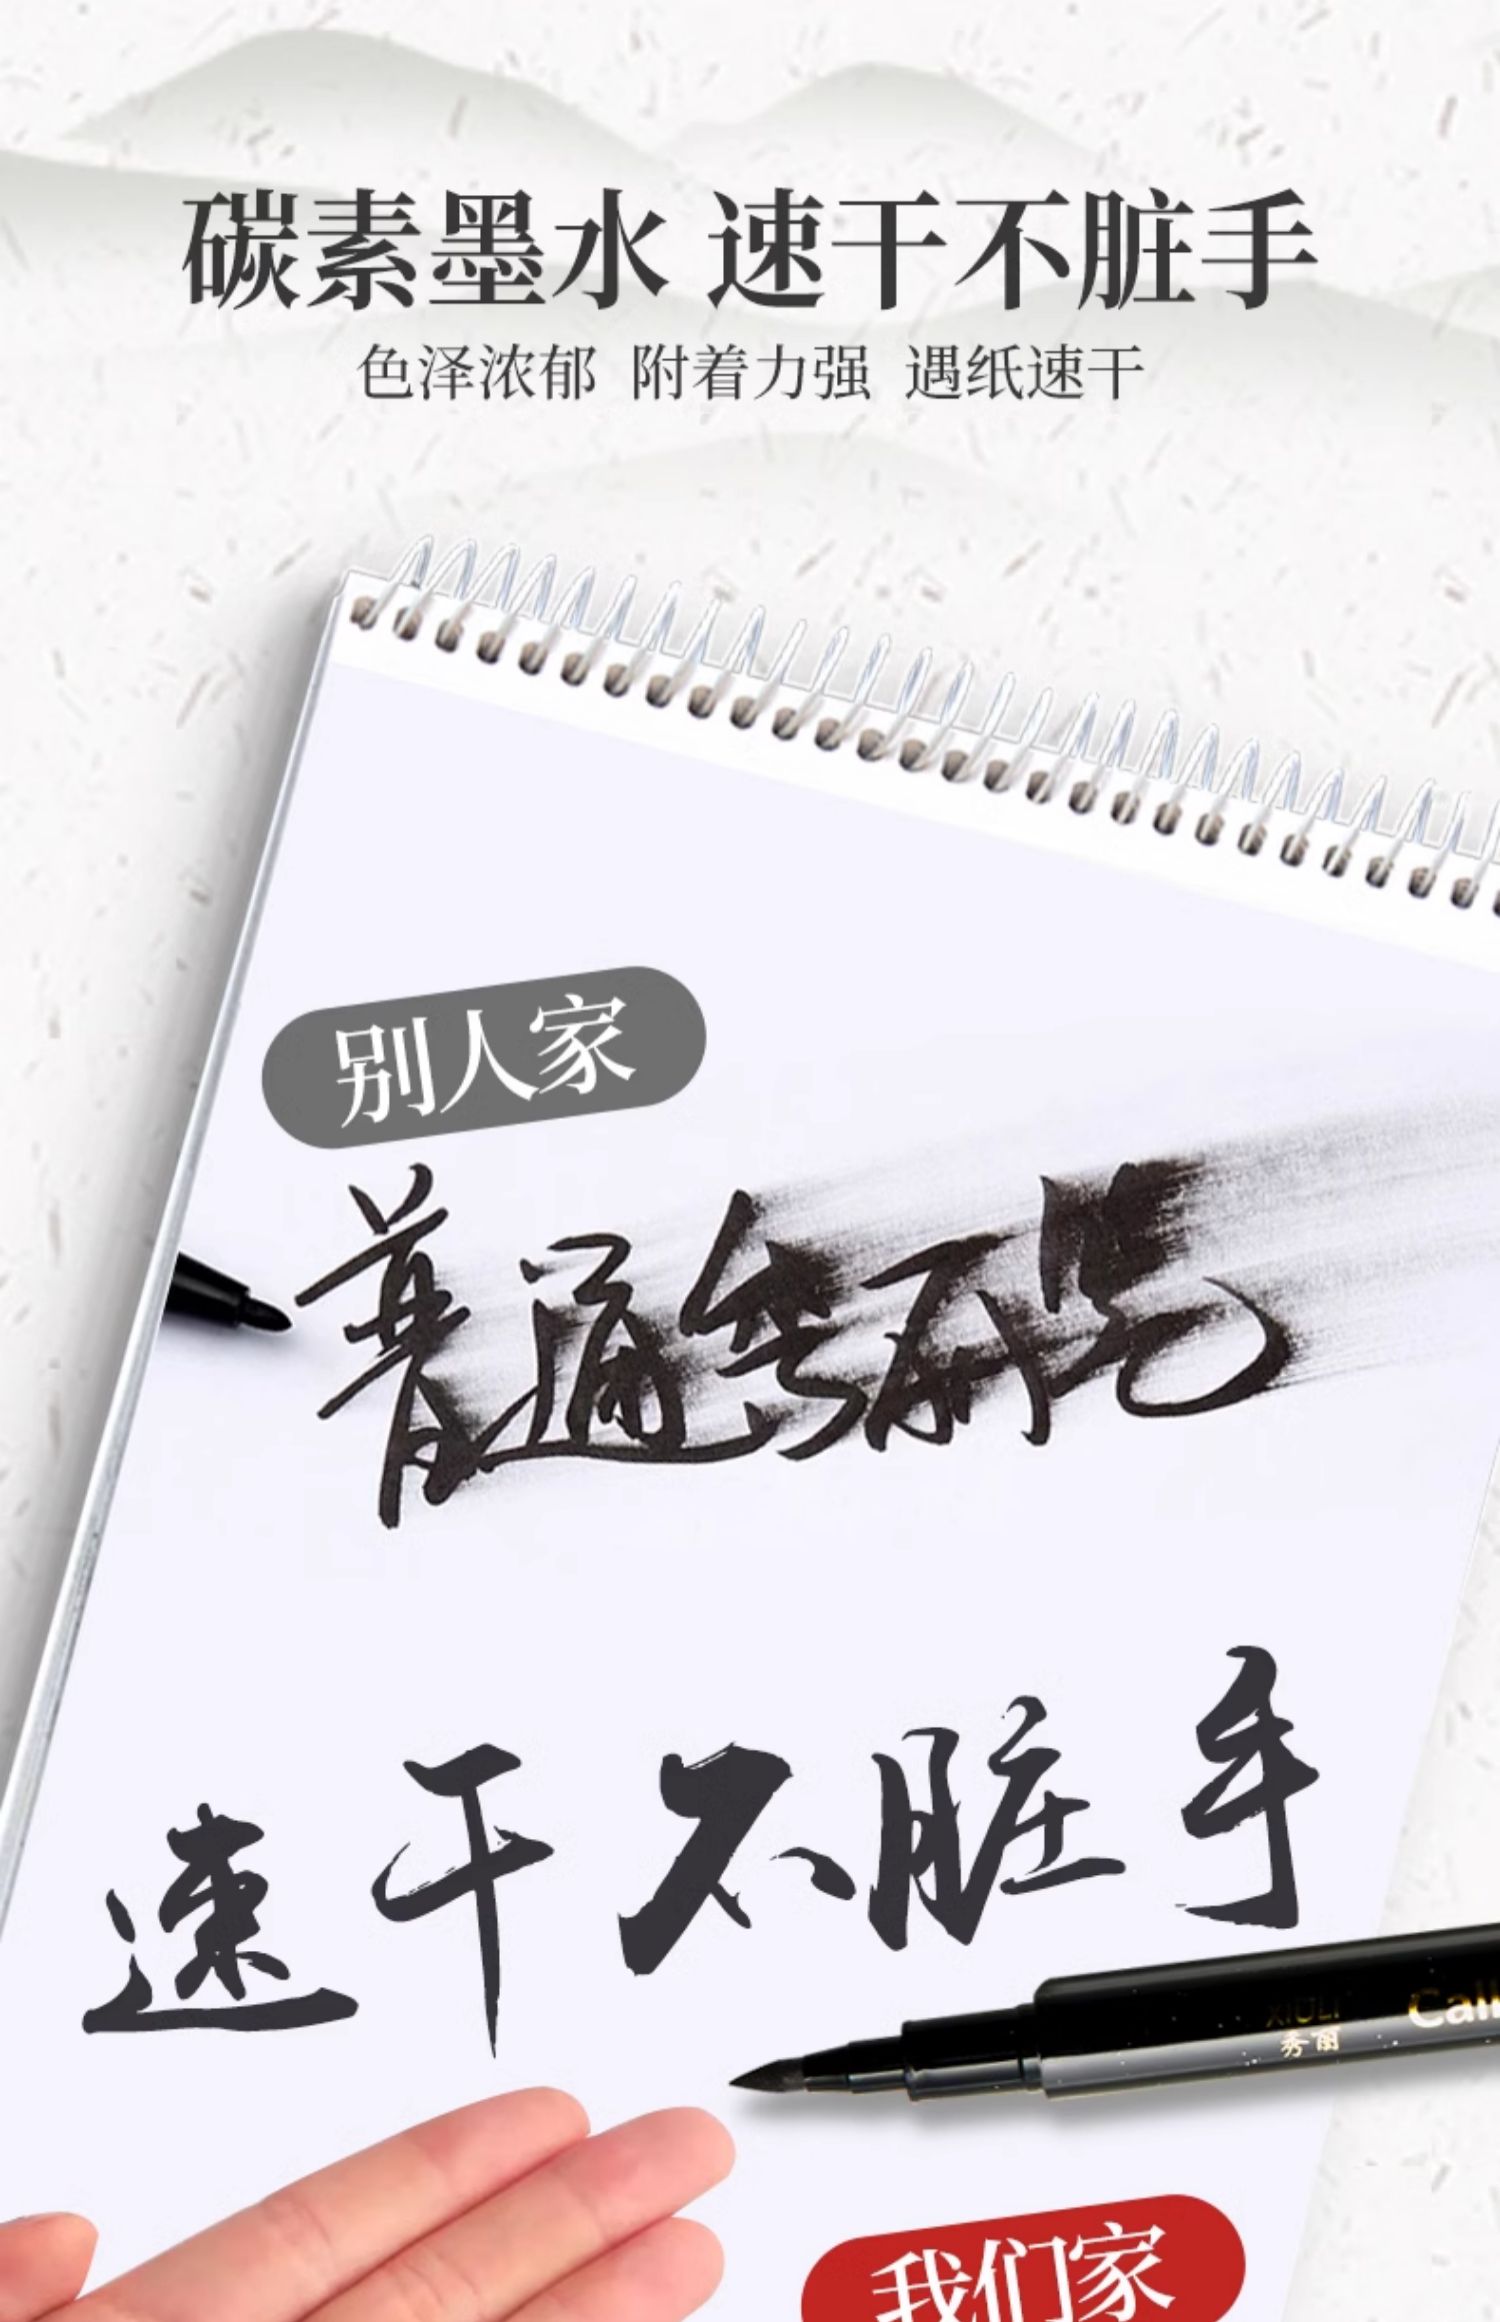 碳素墨水 速干不脏手
色泽浓郁 附着力强 遇纸速干
别人家
普通秀丽笔
速干不脏手
XIULI
秀丽
Call
我们家